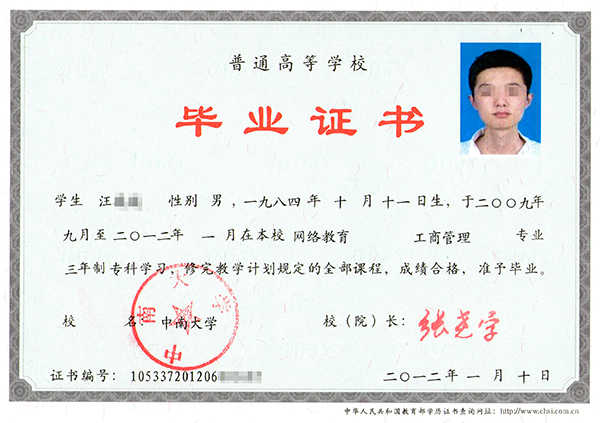 普通高等学校
毕业证书
学生 汪 性别 男，一九八四年 十 月 十一日生，于二〇〇九年
九月至二〇一二年 一 月在本校 网络教育 工商管理 专业
三年制专科学习，修完教学计划规定的全部课程，成绩合格，准予毕业。
校 名：中南大学 校（院）长：张尧学
中南大学
证书编号： 105337201206 二〇一二年 一 月 十 日
中华人民共和国教育部学历证书查询网址：http://www.chsi.com.cn